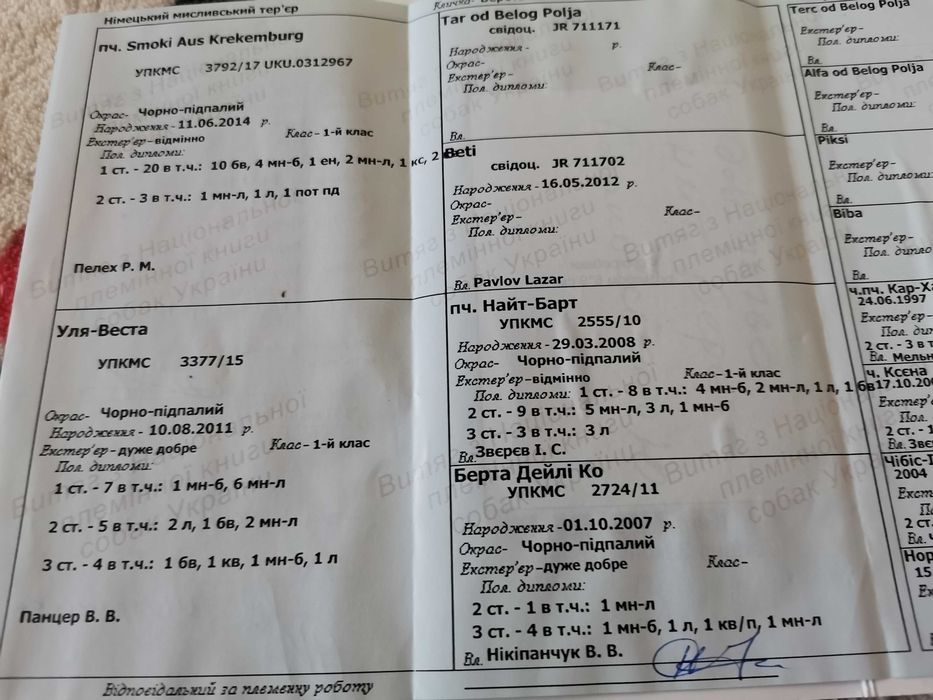 Німецький мисливський тер'єр
пч. Smoki Aus Krekemburg
УПКМС 3792/17 UKU.0312967
Окрас- Чорно-підпалий
Народження - 11.06.2014 р.
Екстер'єр- відмінно Клас- 1-й клас
Пол. дипломи:
1 ст. - 20 в т.ч.: 10 бв, 4 мн-б, 1 ен, 2 мн-л, 1 кс, 2
2 ст. - 3 в т.ч.: 1 мн-л, 1 л, 1 пот пд
Пелех Р. М.
Уля-Веста
УПКМС 3377/15
Окрас- Чорно-підпалий
Народження - 10.08.2011 р.
Екстер'єр- дуже добре Клас- 1-й клас
Пол. дипломи:
1 ст. - 7 в т.ч.: 1 мн-б, 6 мн-л
2 ст. - 5 в т.ч.: 2 л, 1 бв, 2 мн-л
3 ст. - 4 в т.ч.: 1 бв, 1 кв, 1 мн-б, 1 л
Панцер В. В.
Відповідальний за племенну роботу
Кличка-
Tar od Belog Polja
свідоц. JR 711171
Народження - р.
Окрас-
Екстер'єр- Клас-
Пол. дипломи:
Вл.
Beti
свідоц. JR 711702
Народження - 16.05.2012 р.
Окрас-
Екстер'єр- Клас-
Пол. дипломи:
Вл. Pavlov Lazar
пч. Найт-Барт
УПКМС 2555/10
Народження - 29.03.2008 р.
Окрас- Чорно-підпалий
Екстер'єр- відмінно Клас- 1-й клас
Пол. дипломи: 1 ст. - 8 в т.ч.: 4 мн-б, 2 мн-л, 1 л, 1 бв
2 ст. - 9 в т.ч.: 5 мн-л, 3 л, 1 мн-б
3 ст. - 3 в т.ч.: 3 л
Вл. Звєрєв І. С.
Берта Дейлі Ко
УПКМС 2724/11
Народження - 01.10.2007 р.
Окрас- Чорно-підпалий
Екстер'єр- дуже добре Клас-
Пол. дипломи:
2 ст. - 1 в т.ч.: 1 мн-л
3 ст. - 4 в т.ч.: 1 мн-б, 1 л, 1 кв/п, 1 мн-л
Вл. Нікіпанчук В. В.
Terc od Belog Polja
Екстер'єр-
Пол. дипломи:
Вл.
Alfa od Belog Polja
Екстер'єр-
Пол. дипломи:
Вл.
Piksi
Екстер'єр-
Пол. дипломи:
Вл.
Biba
Екстер'єр-
Пол. дипло
Вл.
ч.пч. Кар-Ха
24.06.1997
Екстер'єр-
Пол. ди
2 ст. - 3 в т
Вл. Мельн
ч. Ксєна
17.10.200
Екстер'є
Пол.
2 ст. - 1
Вл. Звє
Чібіс-
2004
Екст
2 ст.
Вл.
Нор
15
Витяг з Національної
племінної книги
собак України